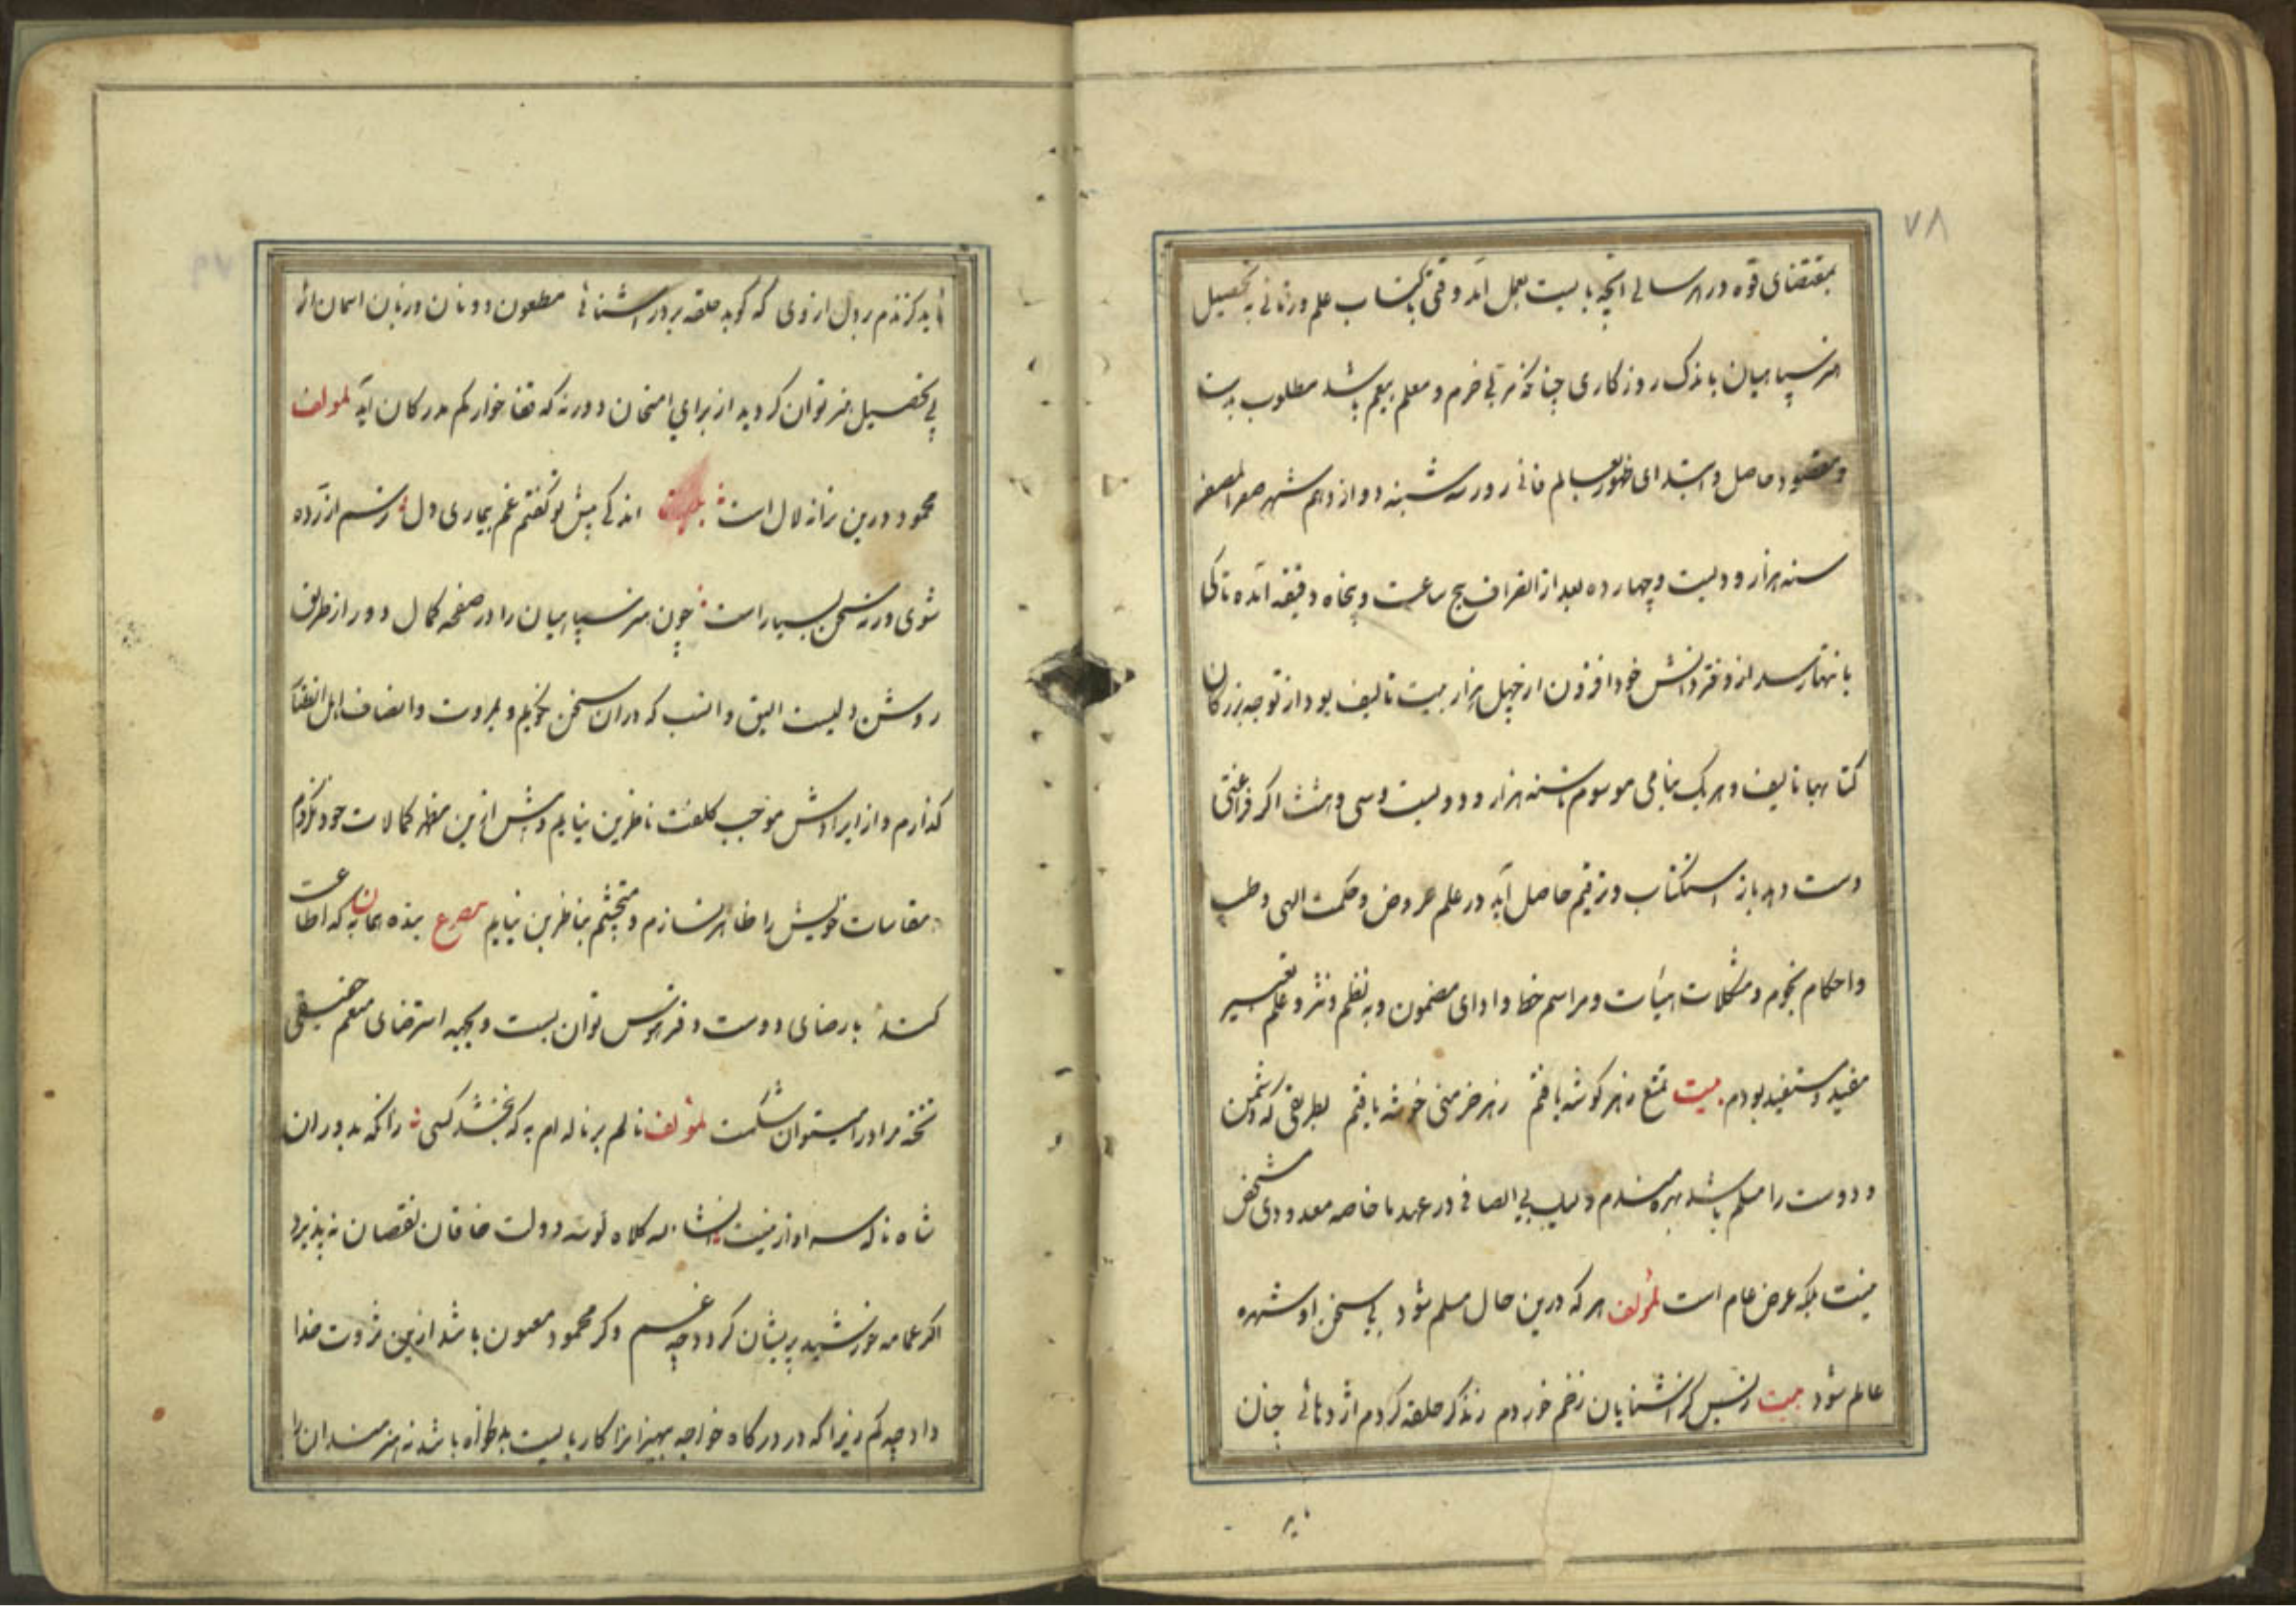 ۷۸
بمقتضای قوه در هر سالی آنچه بایست بعمل آمد وقتی باکتساب علم و زمانی به تحصیل
هنر سپاهیان باندک روزکاری چنانکه مربی خرم و معلم بیغم باشد مطلوب بدست
و مقصود حاصل و ابتدای ظهور بعالم فانی روز سه شنبه دوازدهم شهر صفر المظفر
سنه هزار و دویست و چهارده بعد از انصراف پنج ساعت و پنجاه دقیقه آمده تا کی
بانتها رسد از دفتر دانش خود افزون از چهل هزار بیت تالیف بود از توجه بزرکان
کتابها تالیف و هر یک بنامی موسوم تا سنه هزار و دویست و سی و هشت اکر فراغتی
دست دهد باز استکتاب و ترقیم حاصل آید در علم عروض و حکمت الهی و طب
و احکام نجوم و مشکلات هیأت و مراسم خط و ادای مضمون و به نظم و نثر و علم تفسیر
مفید و مستفید بودم بیت تمتع ز هر کوشه یافتم ز هر خرمنی خوشه یافتم بطریقی که دشمن
و دوست را مسلم باشد بهره مندم ولیک بی انصافی در عهد ما خاصه معدودی مشخص
نیست بلکه عرض عام است لمؤلفه هر که درین حال مسلم شود بی سخن او شهره
عالم شود بیت ز بس کز آشنایان زخم خوردم ز ذکر حلقه کردم اژدهائی چنان
ید
۷۹
ناید کزندم بر دل از وی که کوبد حلقه بر در آشنائی مطعون دونان و زبان اسمان از
پی تحصیل هنر توان کردید از برای امتحان دور نه که قفا خوار کم مدرکان آید لمولفه
محمود درین زمانه لال است اندکی پیش تو کفتم غم بیماری دل ترسم آزرده
شوی ورنه سخن بسیار است چون هنر سپاهیان را در صفحه کمال دور از طریق
روشن دلیست الیق و انسب که در آن سخن نکویم و بمروت و انصاف اهل اتصاف
کذارم و از ایرادش موجب کلفت ناظرین نیایم و بیش ازین مظهر کمالات خود نکردم
مقامات خویش را ظاهر نسازم و متجشم مناظرین نیایم مصرع بنده همان به که اطاعت
کند با رضای دوست دفتر هوس توان بست و بجبه استرضای منعم حقیقی
تخته مرا در میتوان شکست لمؤلفه نالم بر ناله ام به که نبخشد کسی زانکه بدوران
شاه ناکه سزاوار نیست کلاه کوشه دولت خاقان نقصان نه پذیرد
اکر عمامه خورشید پریشان کردد چه غم و کر محمود مغبون باشد ازین ثروت خدا
داد چه کم زیرا که در درکاه خواجه بهیزانرا کار بایست به دلخواه باشد نه هنرمندان را